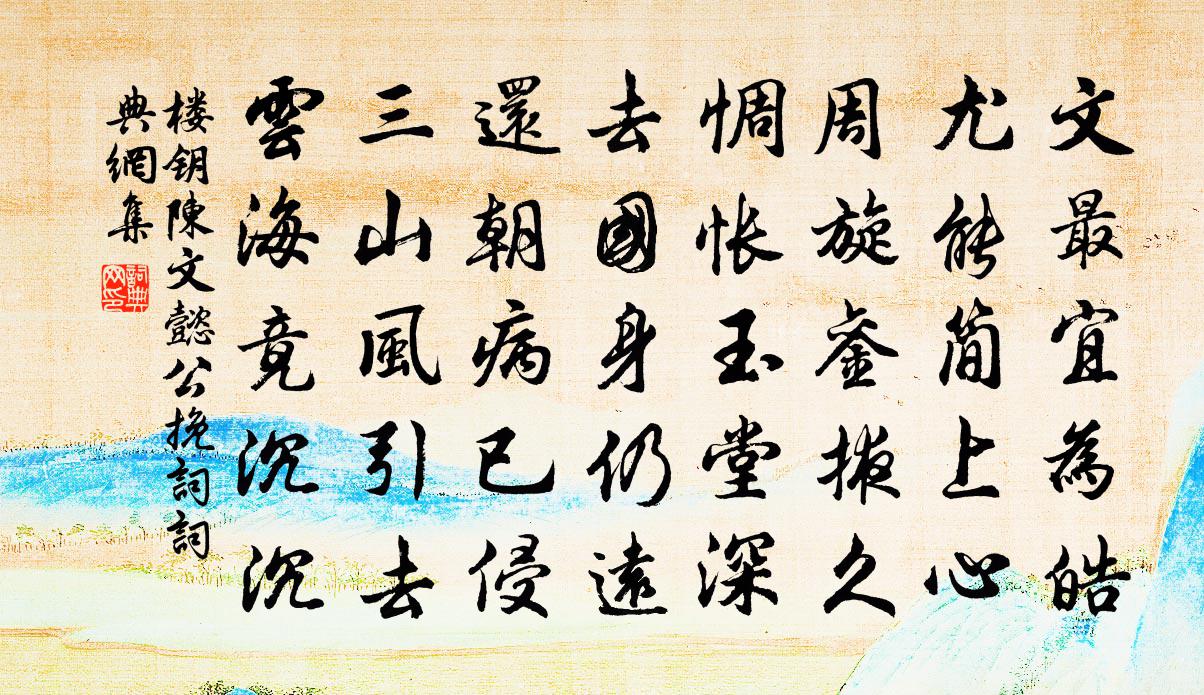 文最宜為皓
尤能简上心
周旋銮掖久
惆怅玉堂深
去國身仍遠
還朝病已侵
三山風引去
雲海竟沉沉
楼钥陳文懿公挽詞詞
典網集
詞典
网印